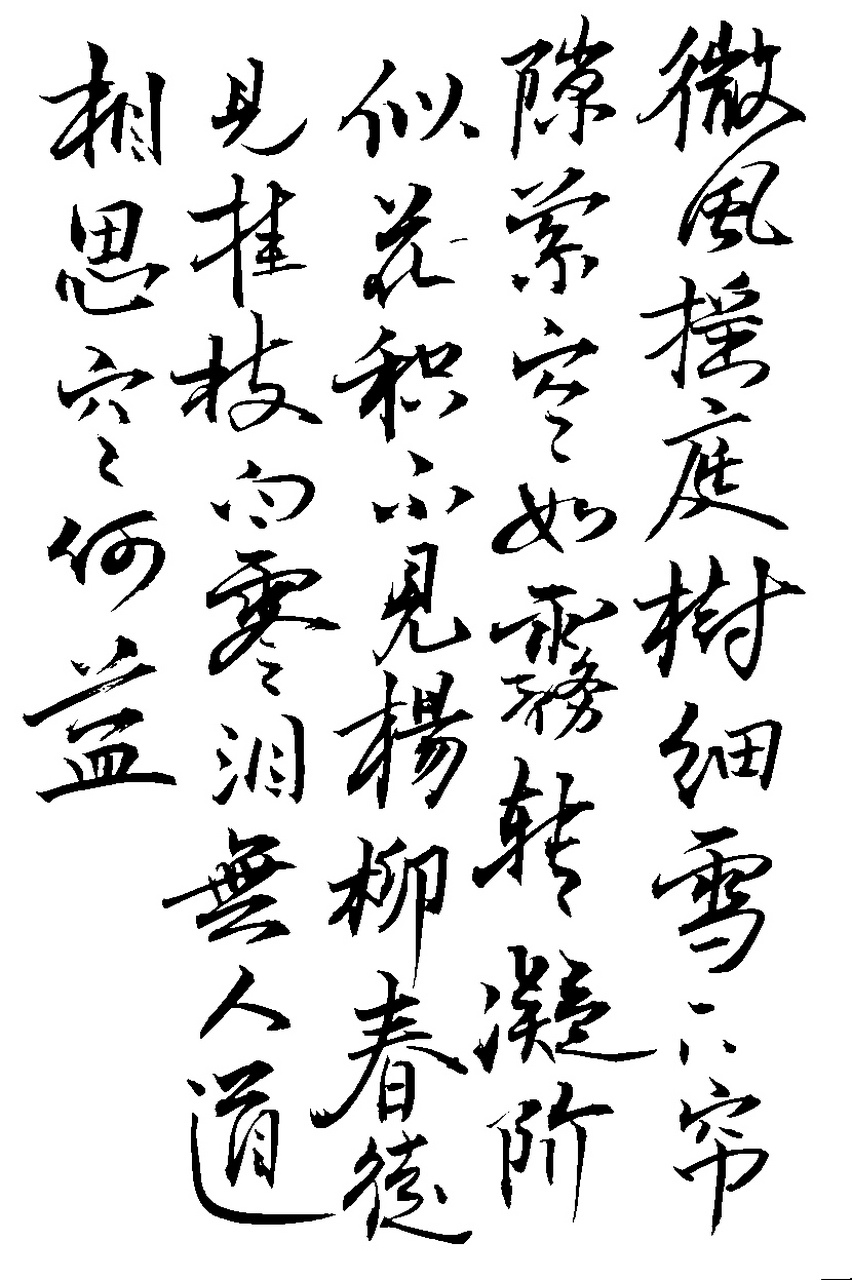 微風摇庭樹细雪下帘
隙萦空如霧转凝阶
似花积不見楊柳春徒
見桂枝白零泪無人道
相思空何益